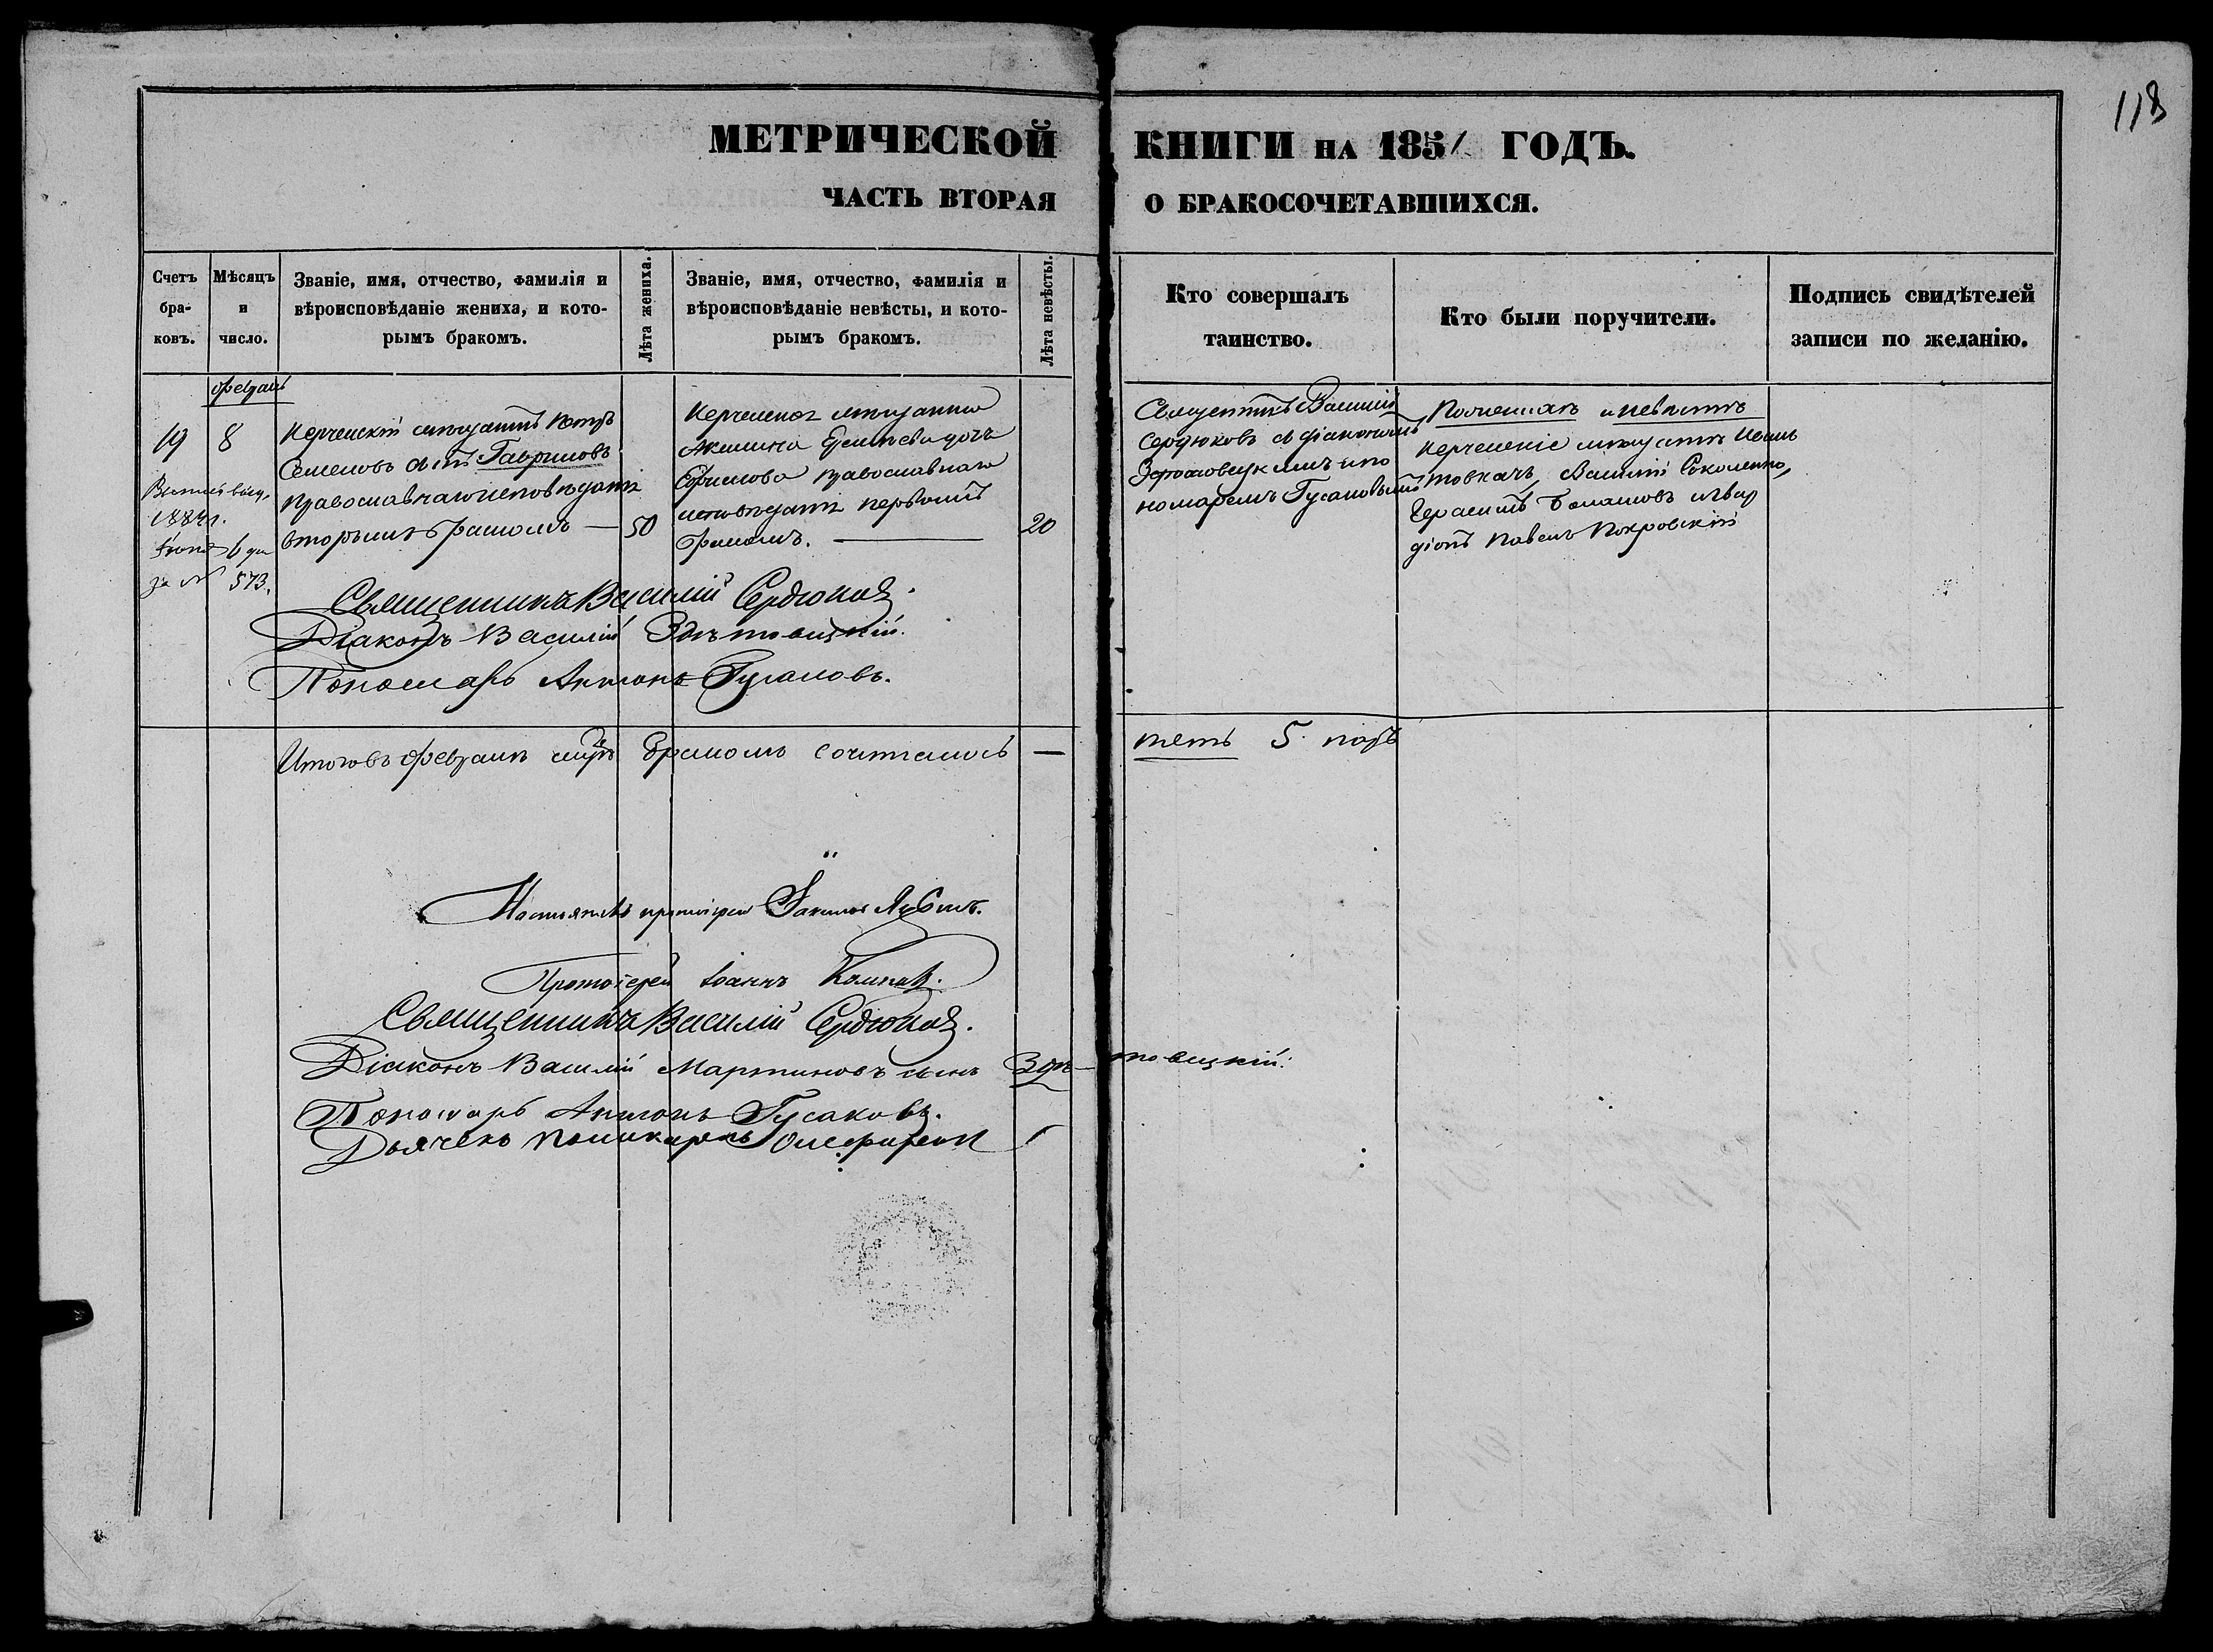 118
МЕТРИЧЕСКОЙ КНИГИ НА 1851 ГОДЪ.
ЧАСТЬ ВТОРАЯ О БРАКОСОЧЕТАВШИХСЯ.
Счетъ бра-ковъ.
Мѣсяцъ и число.
Званіе, имя, отчество, фамилія и
вѣроисповѣданіе жениха, и кото-
рымъ бракомъ.
Лѣта жениха.
Званіе, имя, отчество, фамилія и
вѣроисповѣданіе невѣсты, и кото-
рымъ бракомъ.
Лѣта невѣсты.
Кто совершалъ
таинство.
Кто были поручители.
Подпись свидѣтелей
записи по желанію.
19
8
1884 г.
за № 573.
Керченскій мещанинъ Петръ
Семеновъ сынъ Гавриловъ
православнаго исповеданія
вторымъ бракомъ —
50
Керченская мещанка
Акилина дочь
Ефимова православнаго
исповеданія первымъ
бракомъ. —
20
Священникъ Василій
Сердюковъ съ діакономъ
Здетовецкимъ и по
номаремъ Гусаковымъ
По женихе и невесте
Керченскіе мещане Иванъ
Товкачъ, Василій Соколенко,
Герасимъ
Павелъ Покровскій
Священникъ Василій Сердюковъ.
Діаконъ Василій Здетовецкій.
Пономарь Антонъ Гусаковъ.
Итого въ феврале бракомъ сочеталось — пять 5. паръ
Протоіерей Іоаннъ
Священникъ Василій Сердюковъ.
Діаконъ Василій Мартиновъ сынъ Здетовецкій.
Пономарь Антонъ Гусаковъ.
Дьячекъ Поликарпъ